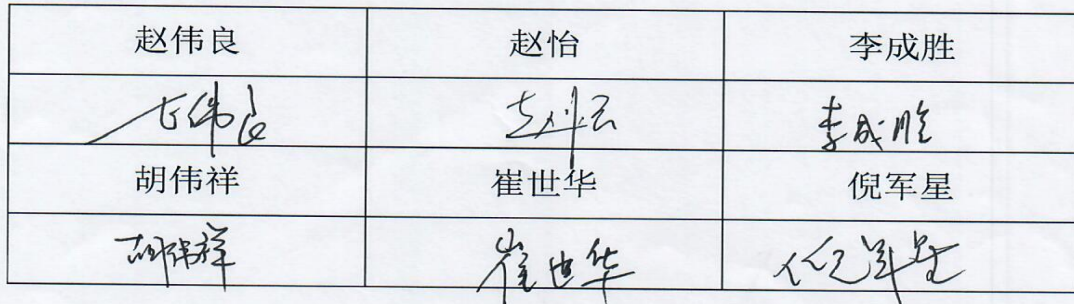 赵伟良 赵怡 李成胜
赵伟良 赵怡 李成胜
胡伟祥 崔世华 倪军星
胡伟祥 崔世华 倪军星